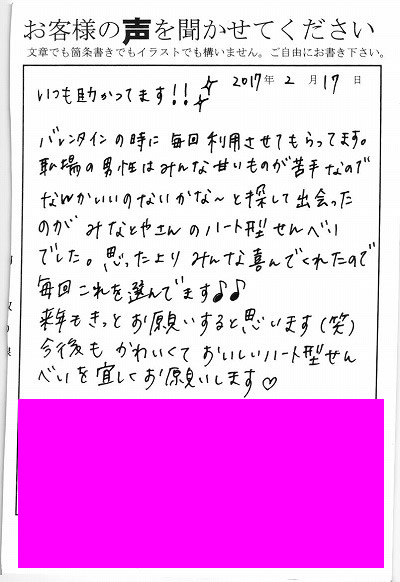 お客様の声を聞かせてください
文章でも箇条書きでもイラストでも構いません。ご自由にお書き下さい。
2017年 2月17日
いつも助かってます!!
バレンタインの時に毎回利用させてもらってます。
職場の男性はみんな甘いものが苦手なので
なんかいいのないかな〜と探して出会った
のが みなとやさんのハート型せんべい
でした。思ったよりみんな喜んでくれたので
毎回これを選んでます♪♪
来年もきっとお願いすると思います(笑)
今後も かわいくておいしいハート型せん
べいを宜しくお願いします♡